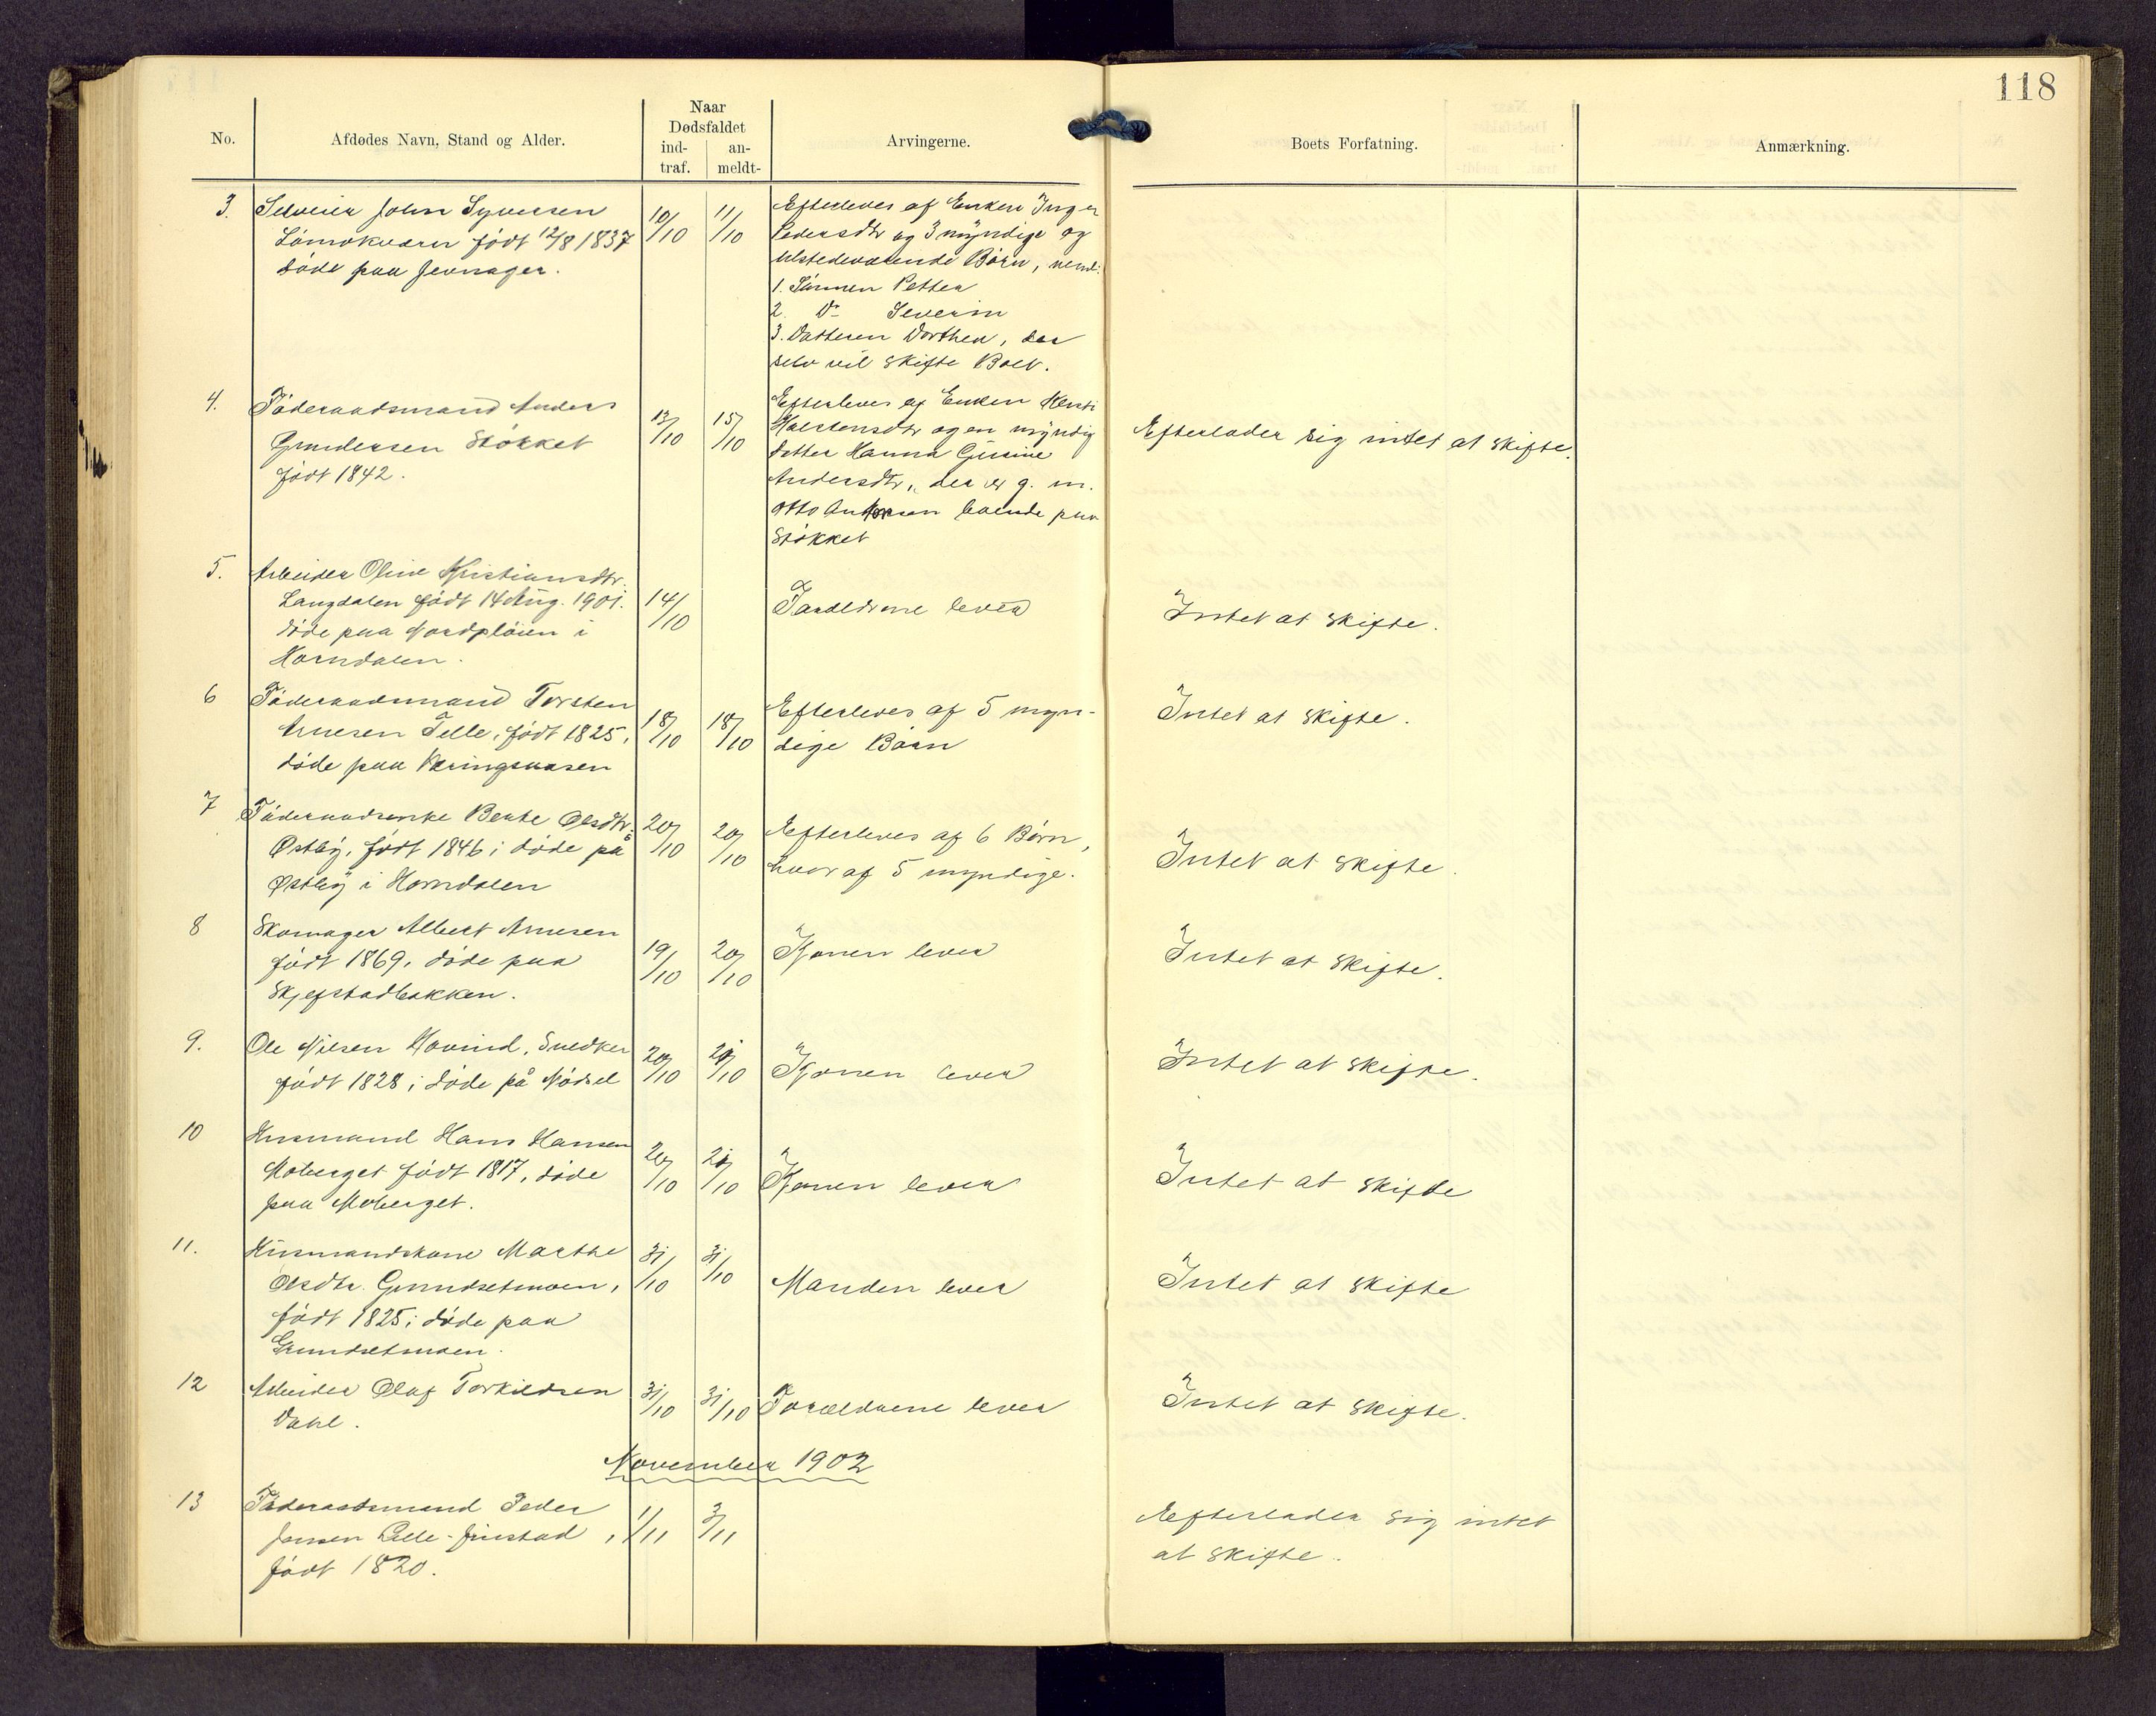 118
No.
Afdødes Navn, Stand og Alder.
Naar
Dødsfaldet
ind-
traf.
an-
meldt-
Arvingerne.
Boets Forfatning.
Anmærkning.
3. Selveier John Syversen
født 12/8 1837
døde paa Jevnager.
10/10
11/10
Efterleves af Enken Inger
Pedersdtr og 3 myndige og
tilstedeværende Børn, neml:
1. Sønnen Petter
2. Do Severin
3. Datteren Dorthea, der
selv vil skifte Boet.
4. Føderaadsmand Anders
Gundersen Støkket
født 1842.
13/10
15/10
Efterleves af Enken Kersti
Halstensdtr og en myndig
datter Hanna
Andersdtr, der er g. m.
Otto boende paa
Støkket
Efterlader sig intet at skifte.
5. Arbeider Oline Kristiansdtr.
Langdalen født 14 Aug. 1901.
døde paa Nordpløien i
Horndalen.
14/10
Forældrene lever
Intet at skifte.
6 Føderaadsmand Torsten
Arnesen Telle, født 1825,
døde paa Kringsaasen
18/10
18/10
Efterleves af 5 myn-
dige Børn
Intet at skifte.
7 Føderaadsenke Bente Olsdtr.
Østby, født 1846; døde på
Østby i Horndalen
20/10
20/10
Efterleves af 6 Børn,
hvoraf 5 myndige.
Intet at skifte.
8 Skomager Albert Arnesen
født 1869, døde paa
Skjefstadbakken.
19/10
20/10
Konen lever
Intet at skifte.
9. Ole Nilsen Hovind, Snedker
født 1828; døde på Nødsel
20/10
21/10
Konen lever
Intet at skifte.
10 Husmand Hans Hansen
Moberget født 1817, døde
paa Moberget.
20/10
21/10
Konen lever
Intet at skifte
11. Husmandskone Marthe
Olsdtr. Grundsetmoen,
født 1825; døde paa
Grundsetmoen.
31/10
31/10
Manden lever
Intet at skifte
12 Arbeider Olaf Torkildsen
Dahl.
31/10
31/10
Forældrene lever
Intet at skifte.
November 1902
13 Føderaadsmand Peder
Jonsen Lille-
født 1820.
1/11
3/11
Efterlader sig intet
at skifte.